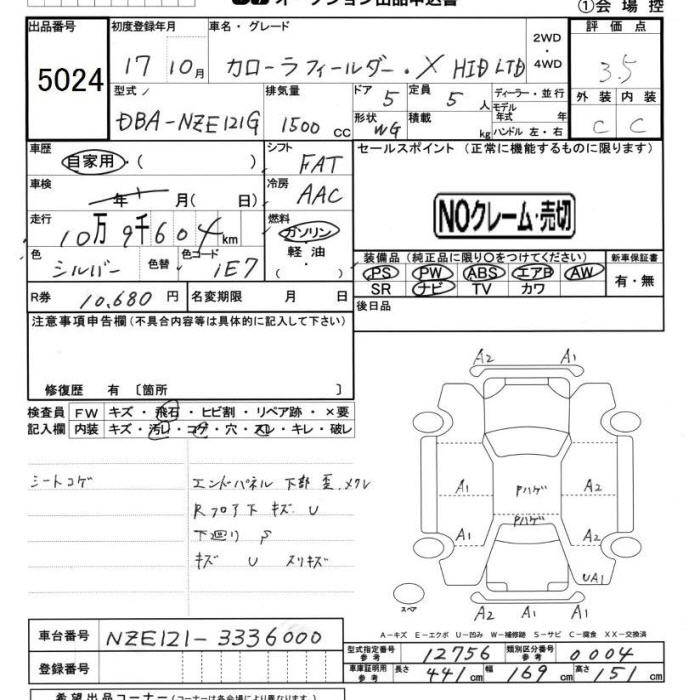 オークション出品申込書
①会場控
出品番号 初度登録年月 車名・グレード 2WD・4WD 評価点
5024 17 10月 カローラフィールダー・X HID LTD 3.5
型式 排気量 ドア 5 定員 5人 ディーラー・並行 外装 内装
DBA-NZE121G 1500cc 形状 WG 積載 kg モデル年式 年 ハンドル 左・右 C C
車歴 自家用・( ) シフト FAT セールスポイント (正常に機能するものに限ります)
車検 年 月( 日) 冷房 AAC
NOクレーム・売切
走行 10万9千604km 燃料 ガソリン・軽油・( )
色 シルバー 色替 色コード 1E7
装備品 (純正品に限り○をつけてください) 新車保証書
PS PW ABS エアB AW 有・無
SR ナビ TV カワ
R券 10,680円 名変期限 月 日 後日品
注意事項申告欄 (不具合内容等は具体的に記入して下さい)
修復歴 有 〔箇所 〕
検査員記入欄 FW キズ・飛石・ヒビ割・リペア跡・×要
内装 キズ・汚レ・コゲ・穴・スレ・キレ・破レ
シートコゲ エンドパネル 下部 歪.メクレ
Rフロア下 キズ U
下廻り S
キズ U スリキズ
A2 A1
A1 Pハゲ A2
Pハゲ
A1 A2
UA1
スペア A2 A1 A1
A-キズ E-エクボ U-凹み W-補修跡 S-サビ C-腐食 XX-交換済
車台番号 NZE121-3336000
型式指定番号 参考 12756 類別区分番号 参考 0004
登録番号 車庫証明用 参考 長さ 441cm 幅 169cm 高さ 151cm
希望出品コーナー